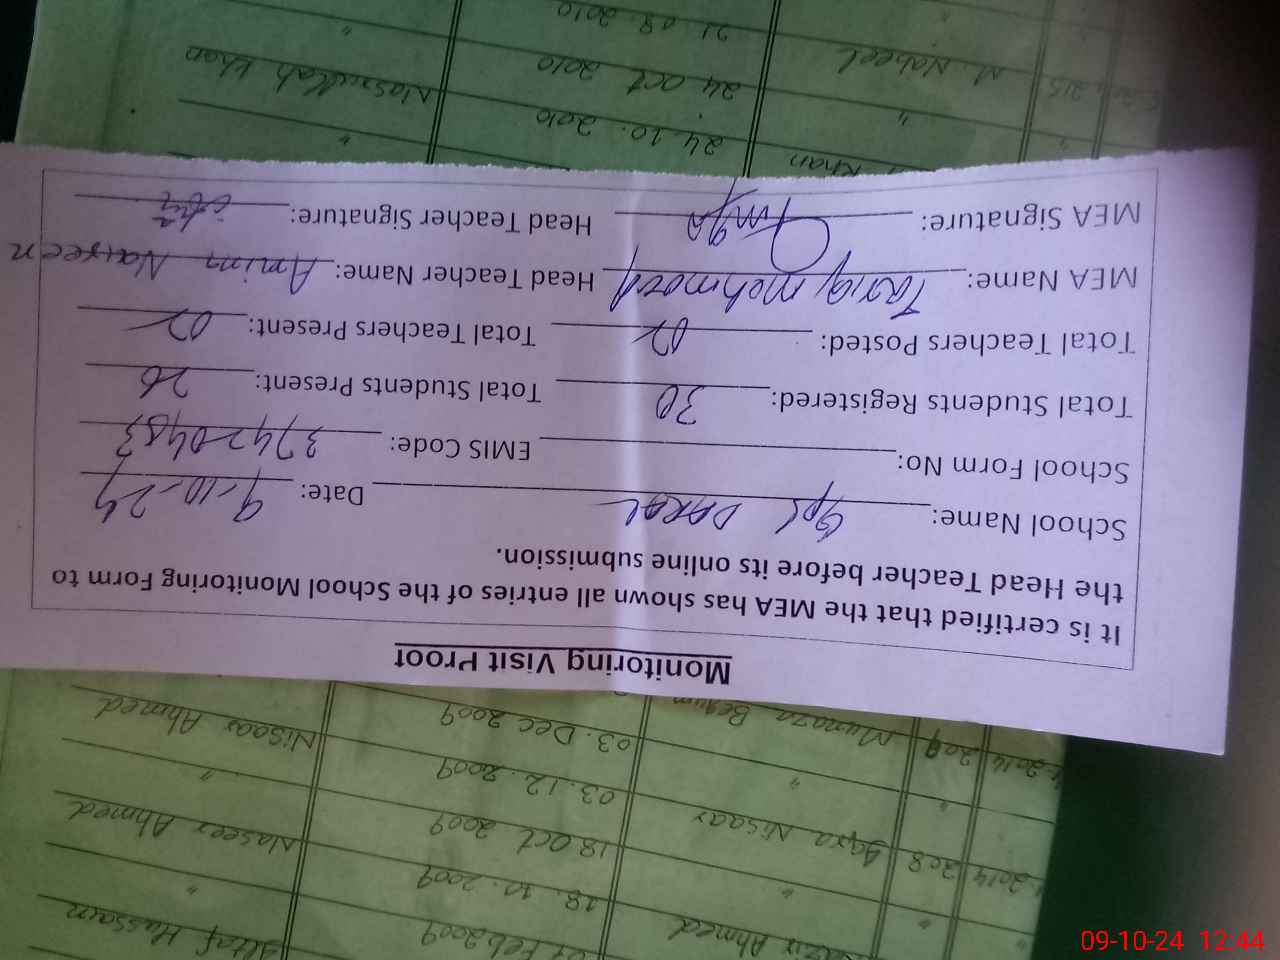 Monitoring Visit Proof
It is certified that the MEA has shown all entries of the School Monitoring Form to
the Head Teacher before its online submission.
School Name: GPS DARAL Date: 9-10-24
School Form No: EMIS Code: 37420483
Total Students Registered: 30 Total Students Present: 26
Total Teachers Posted: 02 Total Teachers Present: 02
MEA Name: Tariq Mehmood Head Teacher Name: Amim Nasreen
MEA Signature: Head Teacher Signature:
Khan 24.10.2010 "
" 24 Oct 2010 Nasrullah Khan
M. Nabeel 21.08.2010 "
Ahmed 07 Feb 2009 Altaf Hussain
" 18.10.2009 "
2014 208 Iqra Nisaar 18 Oct 2009 Naseer Ahmed
" 03.12.2009 "
2014 209 Munaza Begum 03. Dec 2009 Nisaar Ahmed
09-10-24 12:44